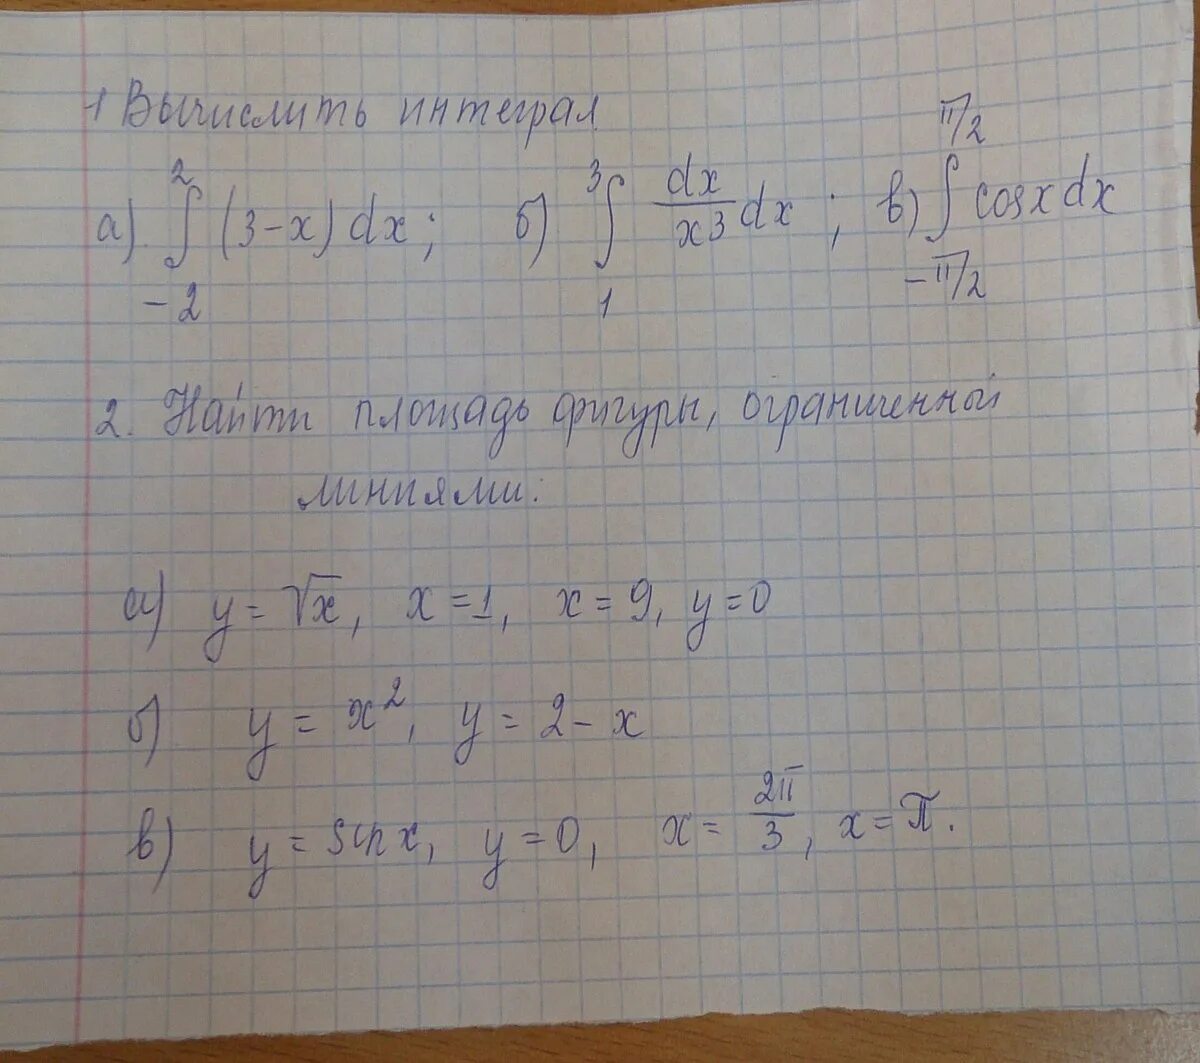 1 Вычислить интеграл
а) ∫₋₂² (3-x) dx; б) ∫₁³ dx/x³ dx; в) ∫₋π/₂^π/2 cosx dx
2. Найти площадь фигуры, ограниченной
линиями:
а) y = √x, x = 1, x = 9, y = 0
б) y = x², y = 2 - x
в) y = sin x, y = 0, x = 2π/3, x = π.